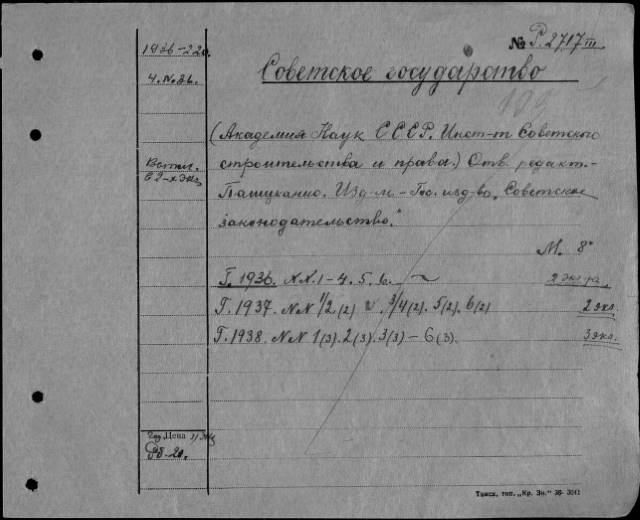 1936-22р.
№ Р.2717 III
Советское государство
4. №26.
(Академия Наук СССР. Инст-т Советского
строительства и права.) Отв. редакт.-
Пашуканис. Изд-ль - Гос. изд-во „Советское
законодательство."
в 2-х экз
М. 8°
Г. 1936. №№ 1-4. 5. 6.
2 экз-ра
Г. 1937. №№ 1/2(2) 3/4(2). 5(2). 6(2)
2 экз.
Г. 1938. №№ 1(3). 2(3). 3(3) - 6(3).
3 экз.
Цена
Томск. тип. „Кр. Зн." 38- 3041